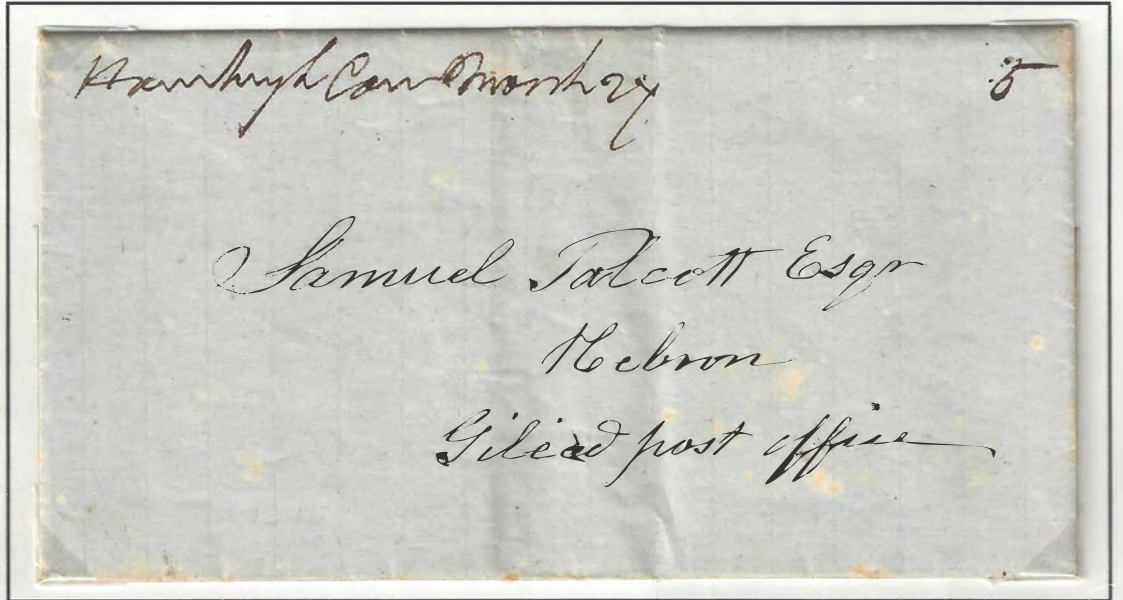 Conn March 27 5
Samuel Talcott Esqr
Hebron
Gilead post office